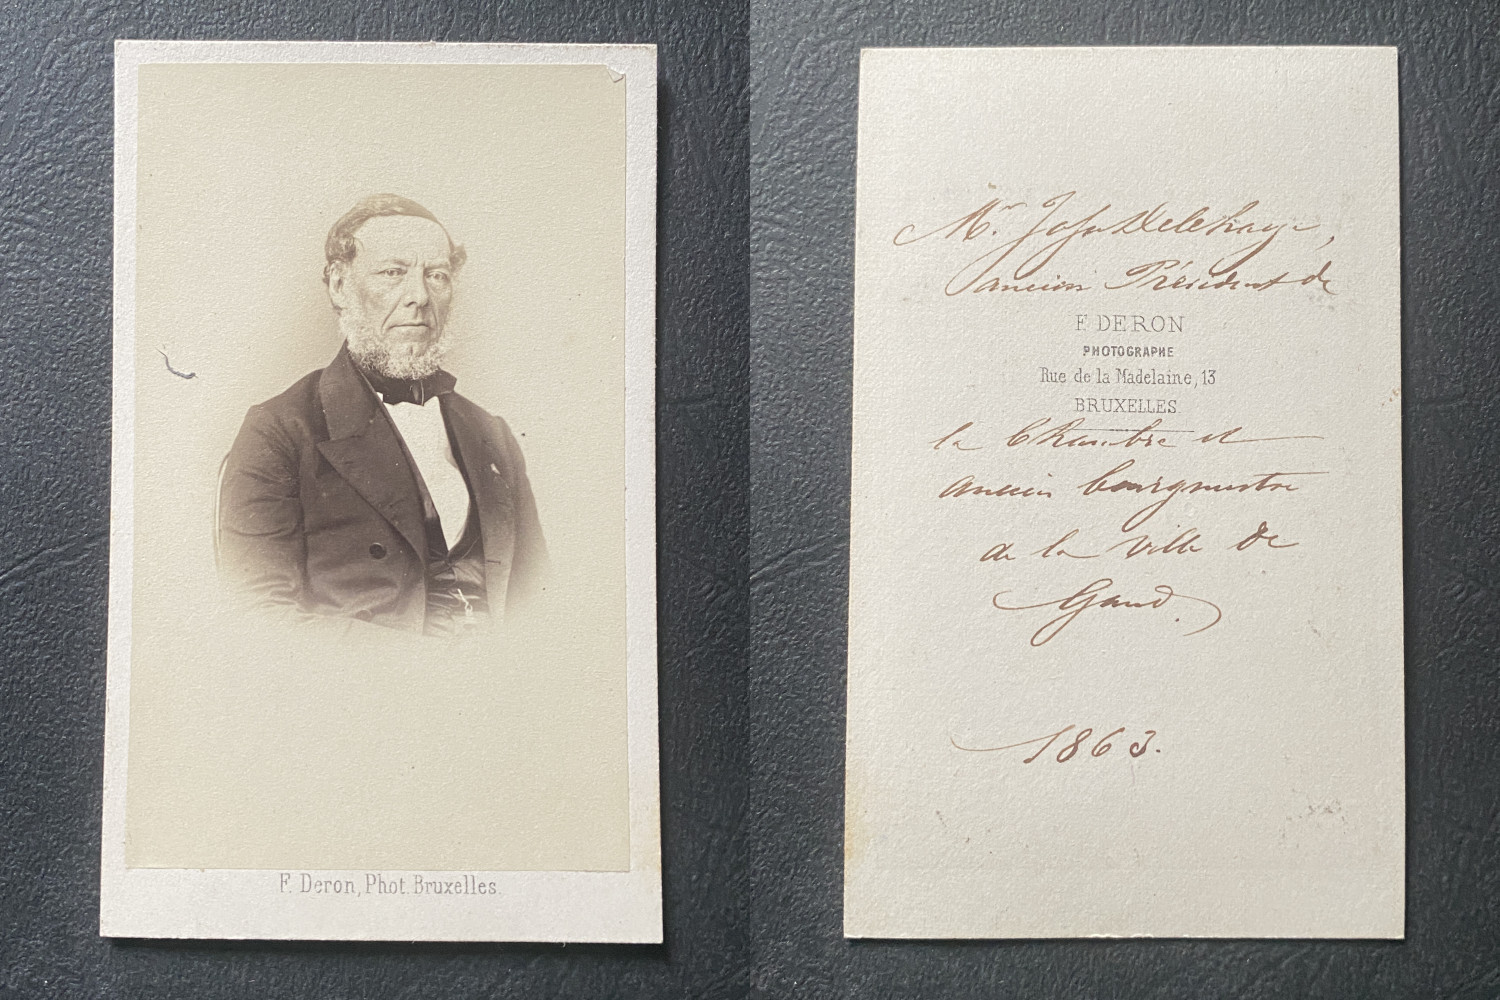 F. Deron, Phot. Bruxelles.
Mr. Josse Delehaye,
ancien Président de
F. DERON
PHOTOGRAPHE
Rue de la Madelaine, 13
BRUXELLES
la Chambre et
ancien bourgmestre
de la ville de
Gand.
1863.